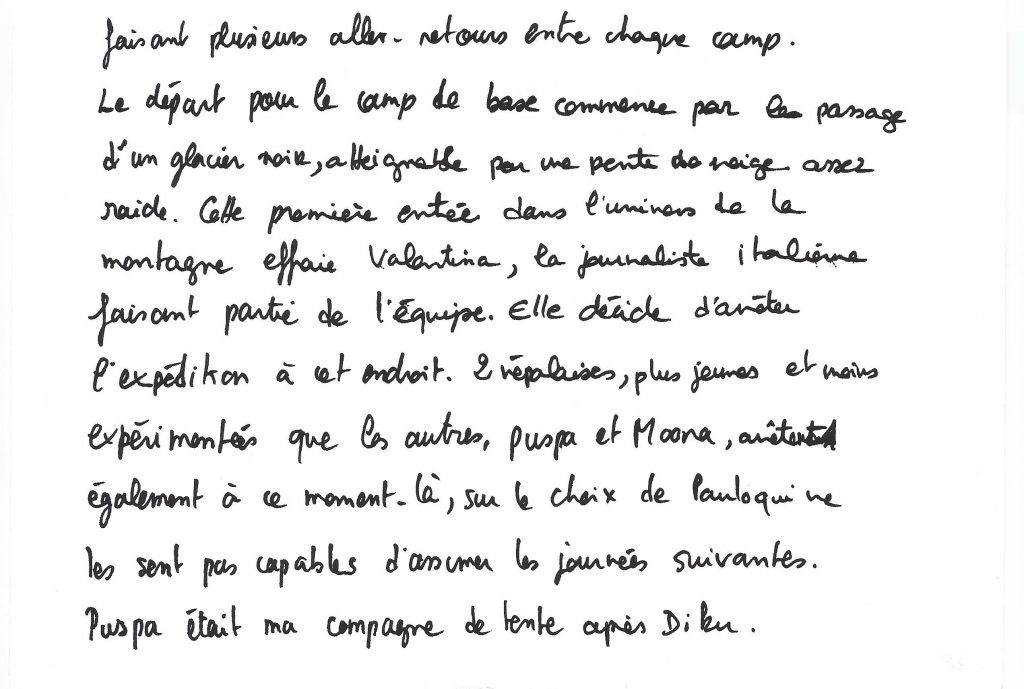 faisant plusieurs aller-retours entre chaque camp.
Le départ pour le camp de base commence par le passage
d'un glacier noir, atteignable par une pente de neige assez
raide. Cette première entrée dans l'univers de la
montagne effraie Valentina, la journaliste italienne
faisant partie de l'équipe. Elle décide d'arrêter
l'expédition à cet endroit. 2 népalaises, plus jeunes et moins
expérimentées que les autres, Puspa et Moona, arrêtent
également à ce moment-là, sur le choix de Paulo qui ne
les sent pas capables d'assumer les journées suivantes.
Puspa était ma compagne de tente après Diku.